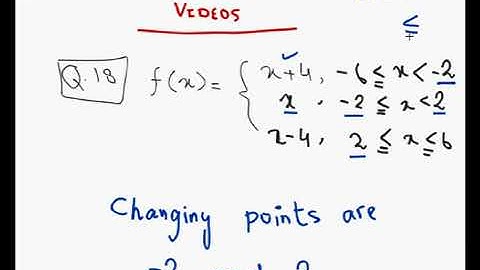 VIDEOS
≤
Q.18 f(x) = { x+4, -6 ≤ x < -2
x, -2 ≤ x < 2
x-4, 2 ≤ x ≤ 6
Changing points are